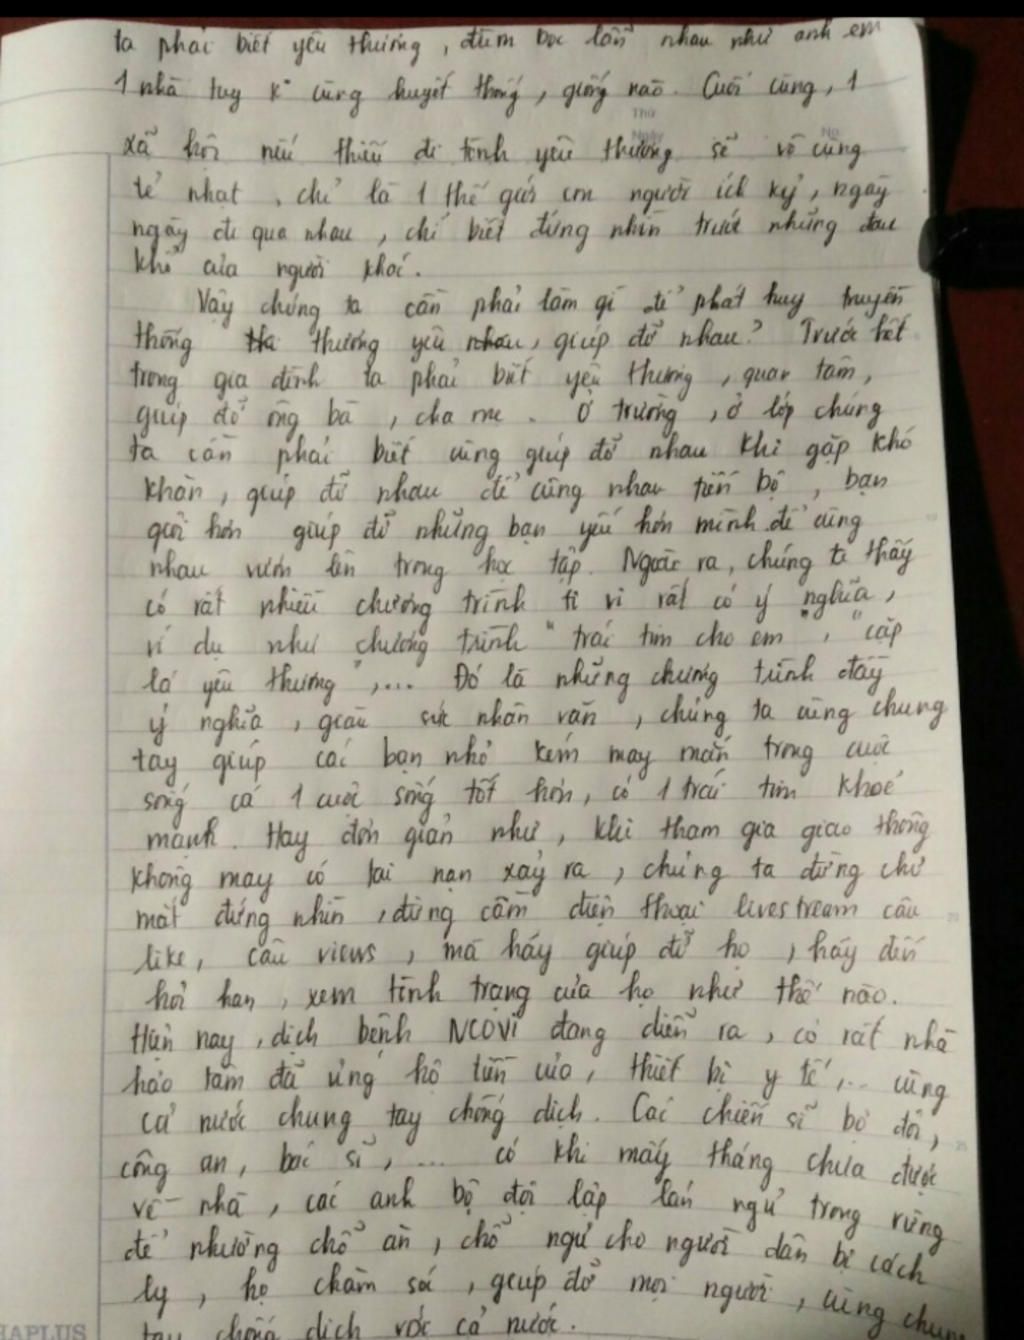 ta phải biết yêu thương, đùm bọc lẫn nhau như anh em
1 nhà tuy k cùng huyết thống, giống nào. Cuối cùng, 1
Thứ
Ngày No.
xã hội nếu thiếu đi tình yêu thương sẽ vô cùng
tẻ nhạt, chỉ là 1 thế giới con người ích kỷ, ngày
ngày đi qua nhau, chỉ biết đứng nhìn trước những đau
khổ của người khác.
Vậy chúng ta cần phải làm gì để phát huy truyền
thống thương yêu nhau, giúp đỡ nhau? Trước hết
trong gia đình ta phải biết yêu thương, quan tâm,
giúp đỡ ông bà, cha mẹ. Ở trường, ở lớp chúng
ta cần phải biết cùng giúp đỡ nhau khi gặp khó
khăn, giúp đỡ nhau để cùng nhau tiến bộ, bạn
giỏi hơn giúp đỡ những bạn yếu hơn mình để cùng
nhau vươn lên trong học tập. Ngoài ra, chúng ta thấy
có rất nhiều chương trình ti vi rất có ý nghĩa,
ví dụ như chương trình "trái tim cho em", "cặp
lá yêu thương",... Đó là những chương trình đầy
ý nghĩa, giàu sức nhân văn, chúng ta cùng chung
tay giúp các bạn nhỏ kém may mắn trong cuộc
sống có 1 cuộc sống tốt hơn, có 1 trái tim khoẻ
mạnh. Hay đơn giản như, khi tham gia giao thông
không may có tai nạn xảy ra, chúng ta đừng chỉ
mắt đứng nhìn, đừng cầm điện thoại livestream câu
like, câu views, mà hãy giúp đỡ họ, hãy đến
hỏi han, xem tình trạng của họ như thế nào.
Hiện nay, dịch bệnh NCOVI đang diễn ra, có rất nhà
hảo tâm đã ủng hộ tiền của, thiết bị y tế,... cùng
cả nước chung tay chống dịch. Các chiến sĩ bộ đội,
công an, bác sĩ,... có khi mấy tháng chưa được
về nhà, các anh bộ đội lập lán ngủ trong rừng
để nhường chỗ ăn, chỗ ngủ cho người dân bị cách
ly, họ chăm sóc, giúp đỡ mọi người, cùng chung
tay chống dịch với cả nước.
HAPLUS